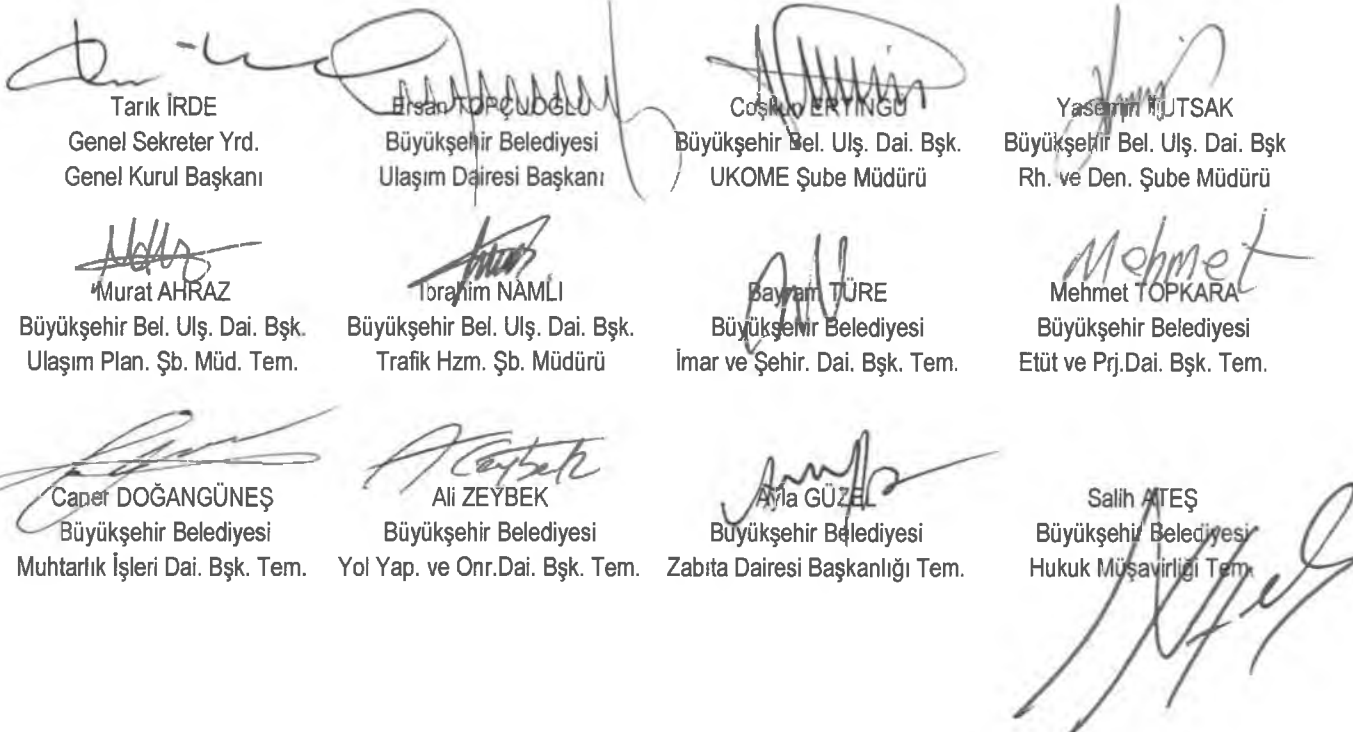 Tarık İRDE
Genel Sekreter Yrd.
Genel Kurul Başkanı
Ersan TOPÇUOĞLU
Büyükşehir Belediyesi
Ulaşım Dairesi Başkanı
Coşkun
Büyükşehir Bel. Ulş. Dai. Bşk.
UKOME Şube Müdürü
Yasemin TUTSAK
Büyükşehir Bel. Ulş. Dai. Bşk
Rh. ve Den. Şube Müdürü
Murat AHRAZ
Büyükşehir Bel. Ulş. Dai. Bşk.
Ulaşım Plan. Şb. Müd. Tem.
İbrahim NAMLI
Büyükşehir Bel. Ulş. Dai. Bşk.
Trafik Hzm. Şb. Müdürü
Bayram TÜRE
Büyükşehir Belediyesi
İmar ve Şehir. Dai. Bşk. Tem.
Mehmet
Mehmet TOPKARA
Büyükşehir Belediyesi
Etüt ve Prj.Dai. Bşk. Tem.
Caner DOĞANGÜNEŞ
Büyükşehir Belediyesi
Muhtarlık İşleri Dai. Bşk. Tem.
Ali ZEYBEK
Büyükşehir Belediyesi
Yol Yap. ve Onr.Dai. Bşk. Tem.
Ayla GÜZEL
Büyükşehir Belediyesi
Zabıta Dairesi Başkanlığı Tem.
Salih ATEŞ
Büyükşehir Belediyesi
Hukuk Müşavirliği Tem.